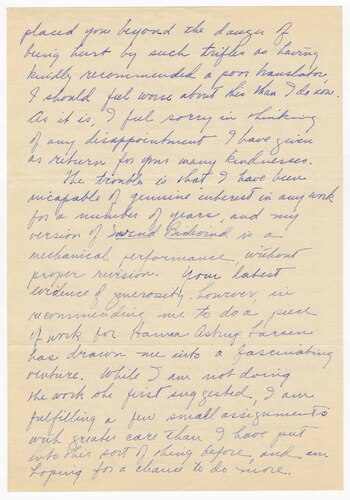 placed you beyond the danger of
being hurt by such trifles as having
kindly recommended a poor translator,
I should feel worse about this than I do now.
As it is, I feel sorry in thinking
of any disappointment I have given
as return for your many kindnesses.
The trouble is that I have been
incapable of genuine interest in any work
for a number of years, and my
version of Svend Bidevind is a
mechanical performance, without
proper revision. Your latest
evidence of generosity, however, in
recommending me to do a piece
of work for Hanna Astrup Larsen
has drawn me into a fascinating
venture. While I am not doing
the work she first suggested, I am
fulfilling a few small assignments
with greater care than I have put
into this sort of thing before, and am
hoping for a chance to do more.